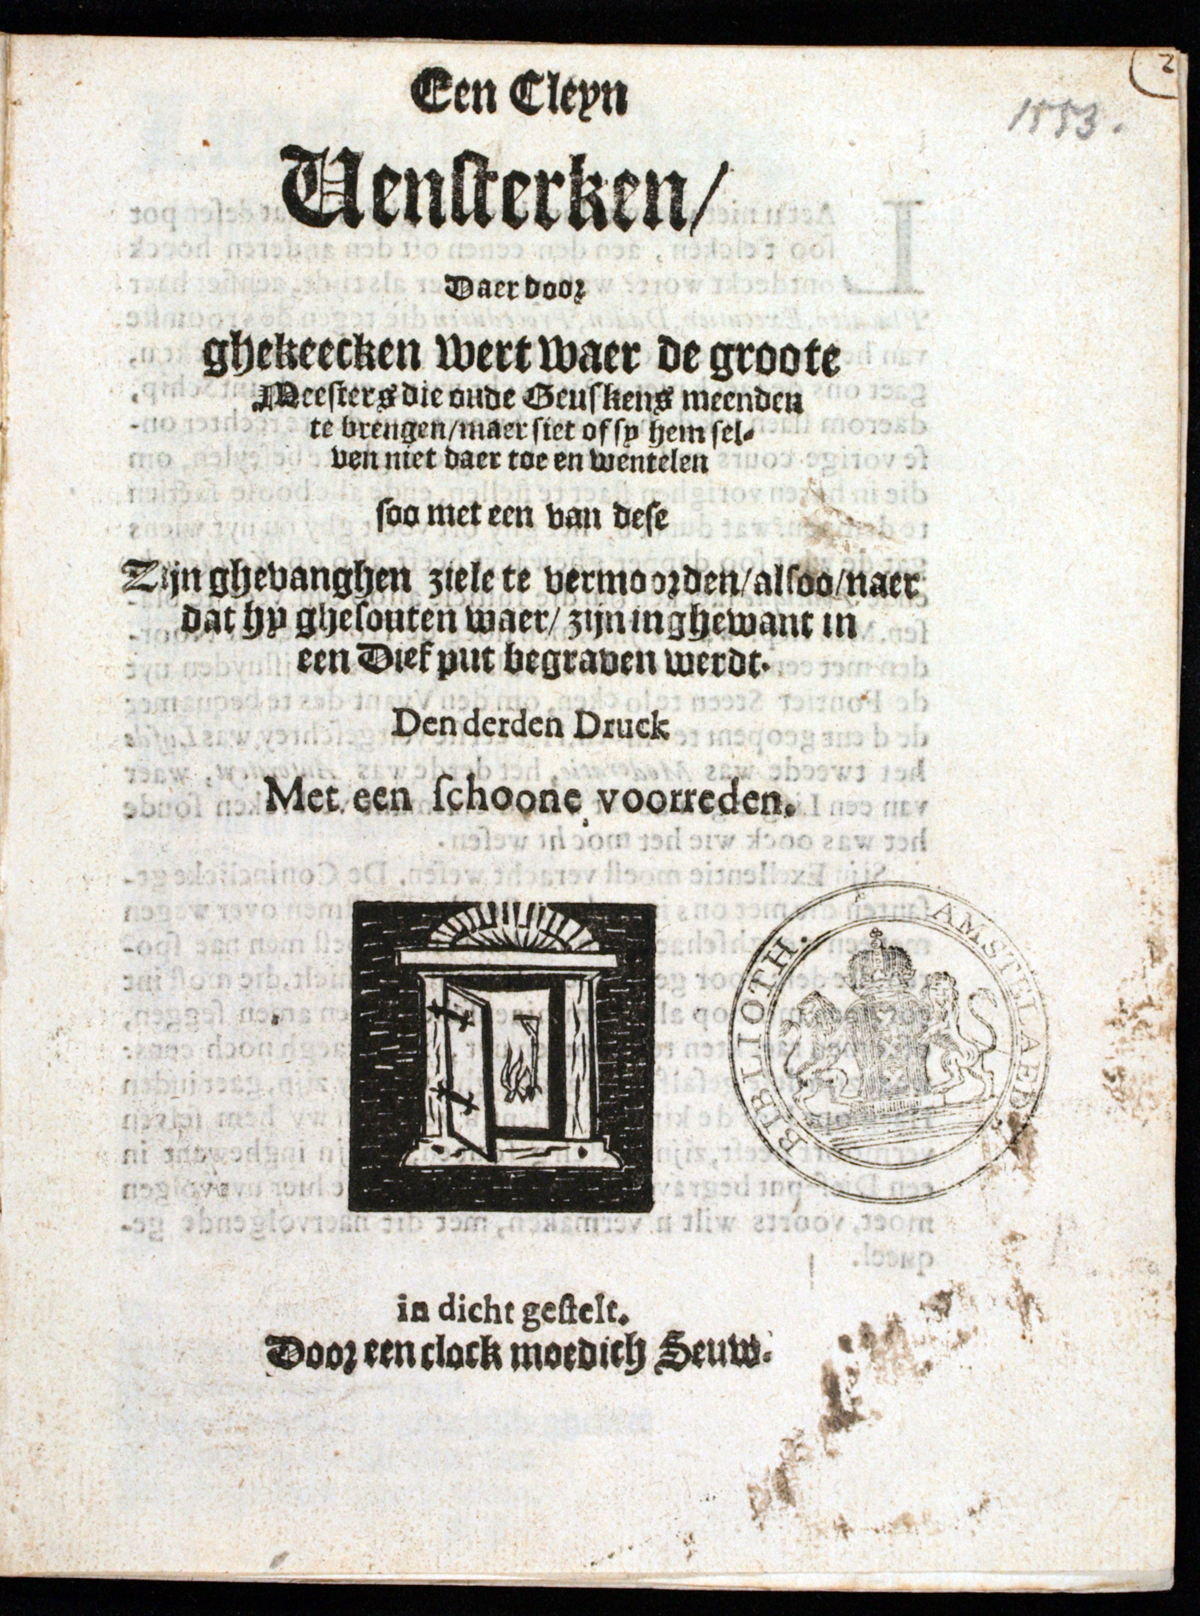 2
1553.
Een Cleyn
Uensterken/
Daer door
ghekeecken wert waer de groote
Meesters die oude Geuskens meenden
te brengen/maer siet of sy hem sel-
ven niet daer toe en wentelen
soo met een van dese
Zijn ghevanghen ziele te vermoorden/alsoo/naer
dat hy ghesouten waer/ zijn inghewant in
een Dief put begraven werdt.
Den derden Druck
Met een schoone voorreden.
BIBLIOTH. AMSTELAED.
in dicht gestelt.
Door een clock moedich Seuw.